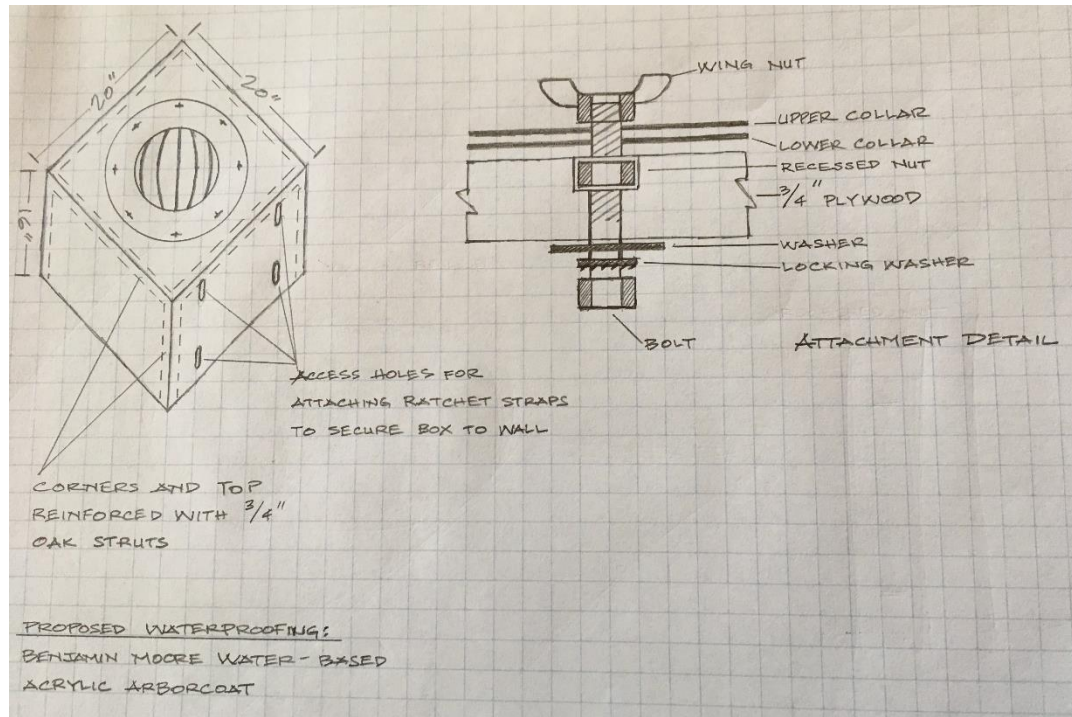 20"
20"
16"
WING NUT
UPPER COLLAR
LOWER COLLAR
RECESSED NUT
3/4" PLYWOOD
WASHER
LOCKING WASHER
BOLT
ATTACHMENT DETAIL
ACCESS HOLES FOR
ATTACHING RATCHET STRAPS
TO SECURE BOX TO WALL
CORNERS AND TOP
REINFORCED WITH 3/4"
OAK STRUTS
PROPOSED WATERPROOFING:
BENJAMIN MOORE WATER-BASED
ACRYLIC ARBORCOAT